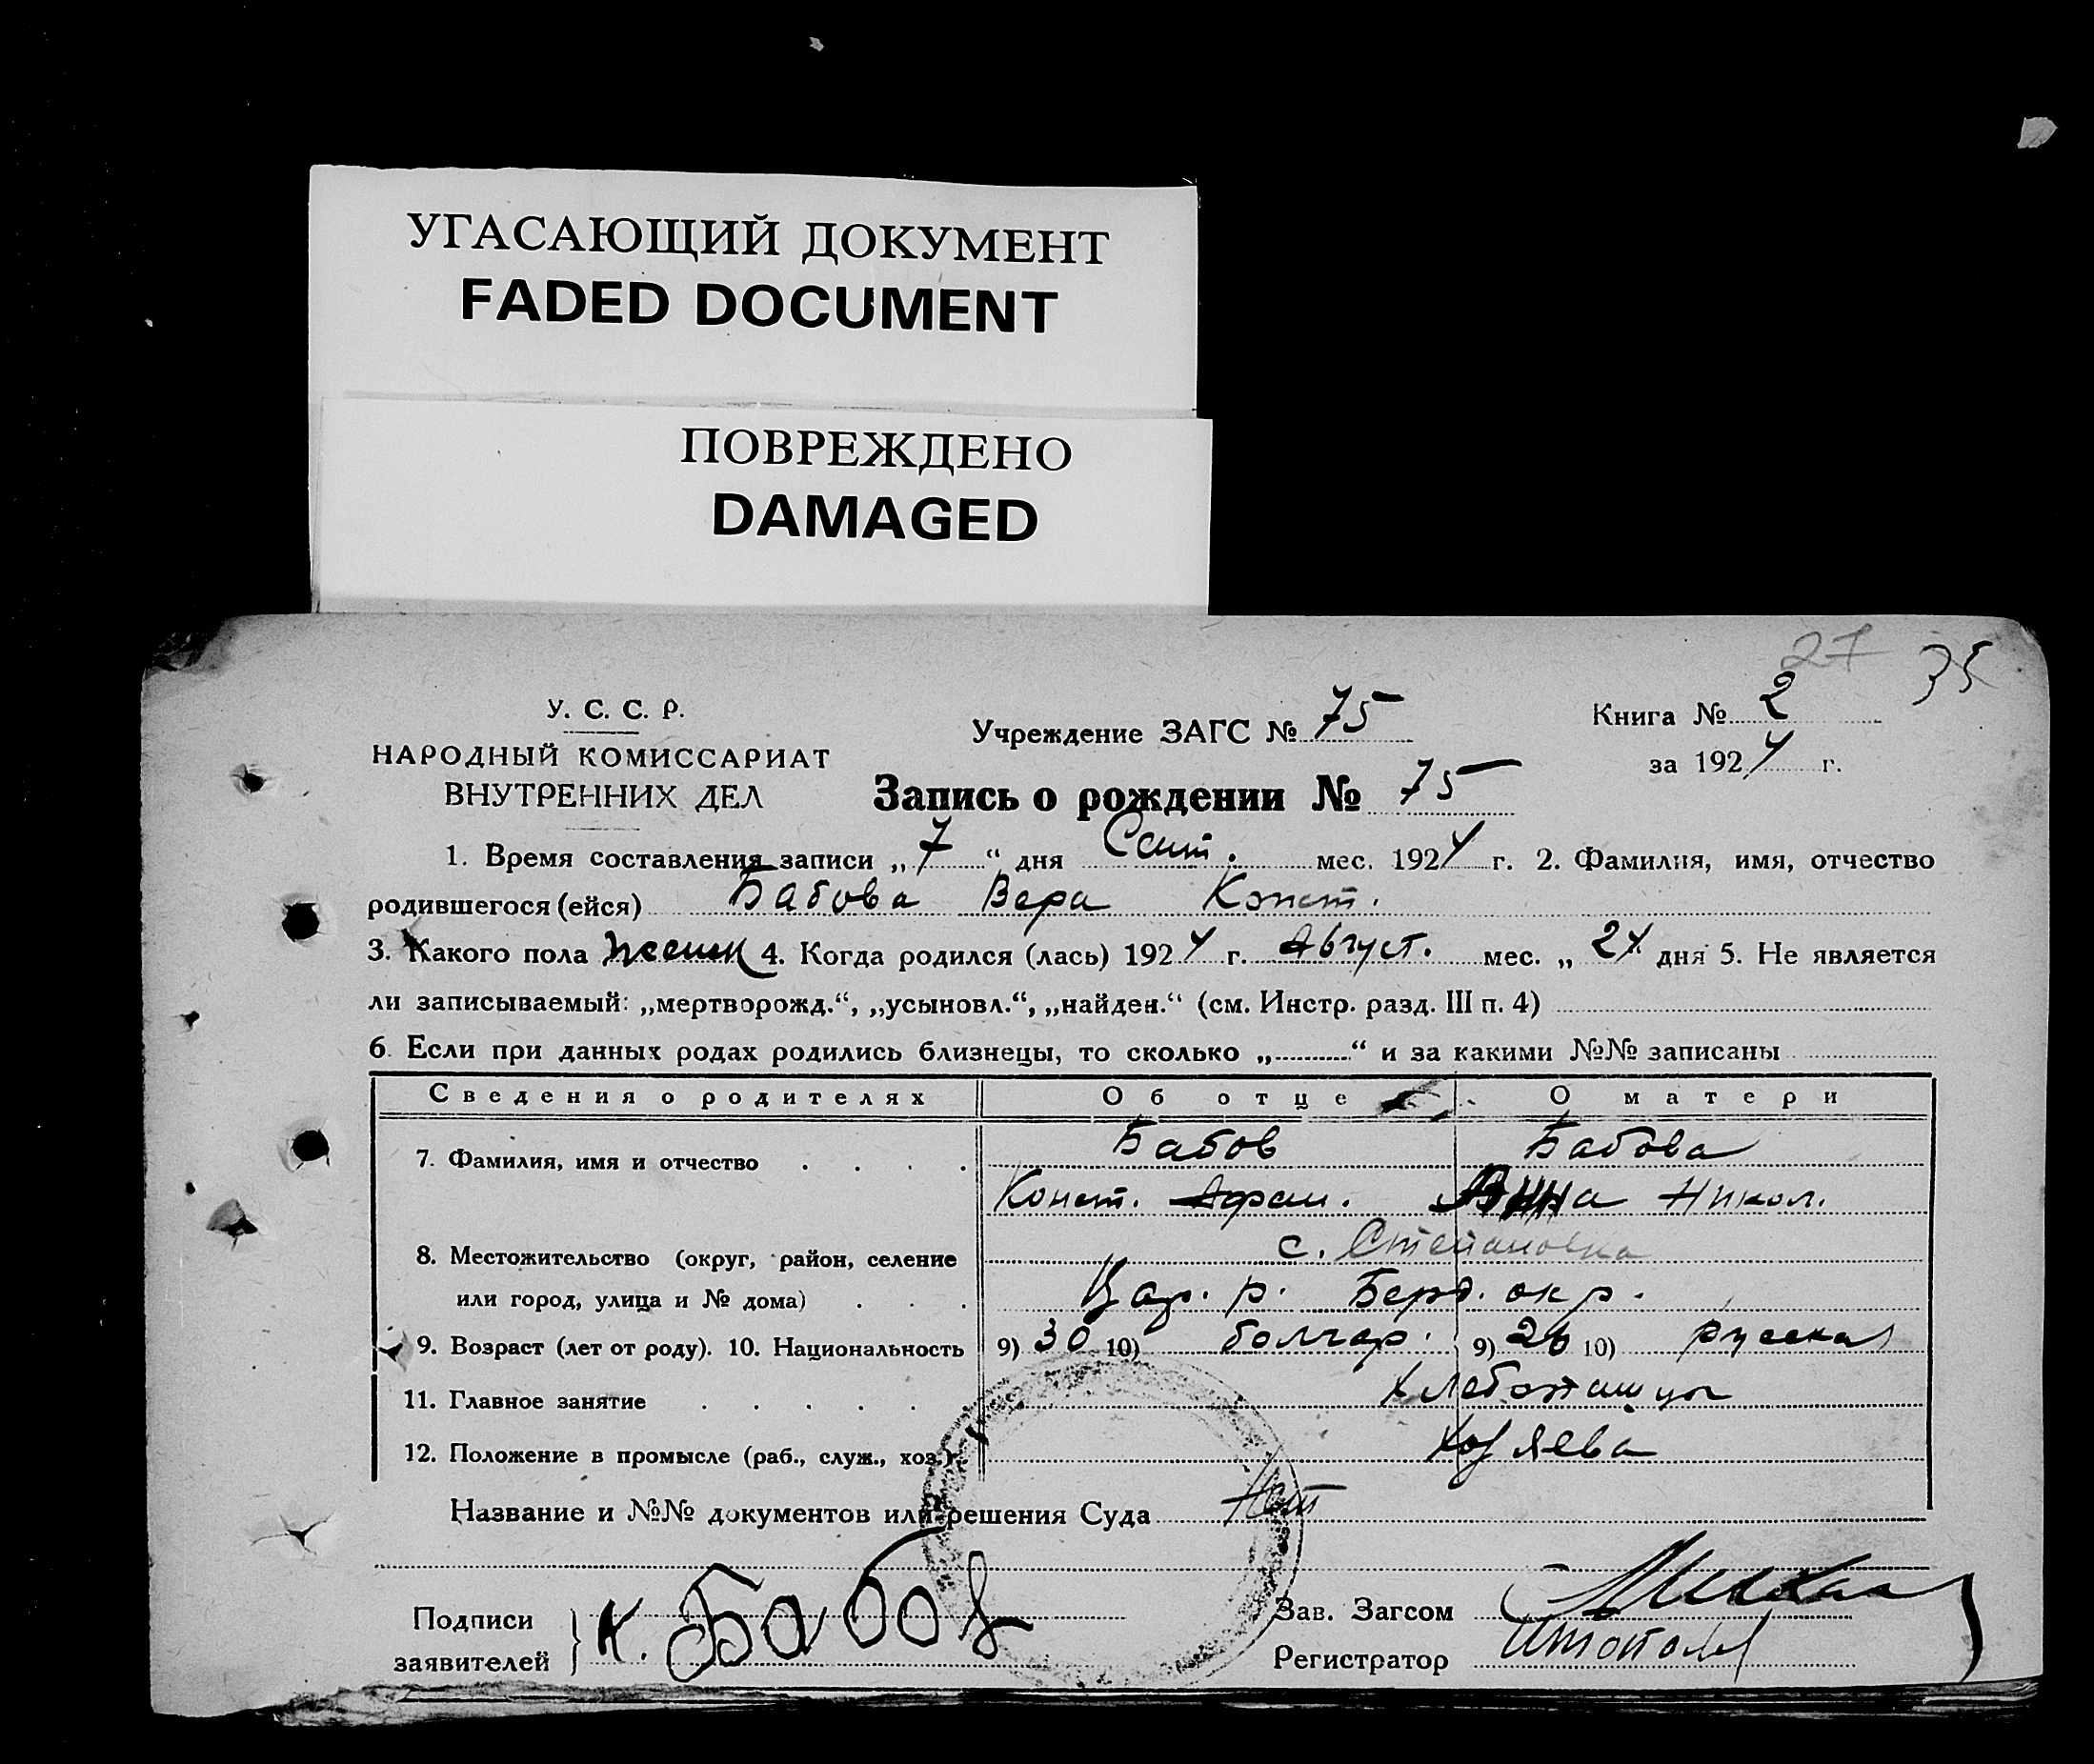 УГАСАЮЩИЙ ДОКУМЕНТ
FADED DOCUMENT
ПОВРЕЖДЕНО
DAMAGED
27 35
У. С. С. Р.
НАРОДНЫЙ КОМИССАРИАТ
ВНУТРЕННИХ ДЕЛ
Учреждение ЗАГС № 75
Книга № 2
за 1924 г.
Запись о рождении № 75
1. Время составления записи „7“ дня Сент. мес. 1924 г. 2. Фамилия, имя, отчество
родившегося (ейся) Бабова Вера Конст.
3. Какого пола женск 4. Когда родился (лась) 1924 г. Август. мес. „24 дня 5. Не является
ли записываемый: „мертворожд.“, „усыновл.“, „найден.“ (см. Инстр. разд. III п. 4)
6. Если при данных родах родились близнецы, то сколько „..........“ и за какими №№ записаны
Сведения о родителях Об отце О матери
7. Фамилия, имя и отчество . . . . Бабов Бабова
Конст. Афан. Анна Никол.
с. Степановка
8. Местожительство (округ, район, селение
или город, улица и № дома) . . . Цар. р. Берд. окр.
9. Возраст (лет от роду). 10. Национальность 9) 30 10) болгар. 9) 26 10) русская
11. Главное занятие . . . . . Хлебопашцы
12. Положение в промысле (раб., служ., хоз.) Хозяева
Название и №№ документов или решения Суда Нет
Подписи
заявителей
К. Бабов
Зав. Загсом
Регистратор